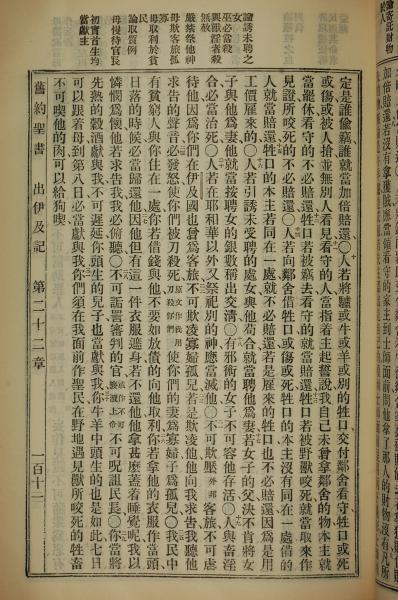 加倍賠還若沒有拿獲賊應當領看守的家主到士師面前問他拿了那人的財物沒有凡所
論誘未聘之
女
巫必當殺
與獸淫者殺
無赦
嚴禁祭他神
毋欺客旅孤
寡
毋取利於貧
民
論取質例
毋慢待官長
初實首生均
當獻主
定是誰偷竊誰就當加倍賠還〇人若將驢或牛或羊或別的牲口交付鄰舍看守牲口或死
或傷或被人搶並無別人看見看守的人當指着主起誓說我自己未曾拿鄰舍的物本主就
當罷休看守的不必賠還牲口若被竊去看守的就當賠還牲口若被野獸咬死就當取來作
見證所咬死的不必賠還〇人若向鄰舍借牲口或傷或死牲口的本主沒有同在一處借的
人就當賠還牲口的本主若同在一處就不必賠還若是雇來的牲口也不必賠還因爲是用
工價雇來的〇人若引誘未受聘的處女與他苟合就當聘他爲妻若女子的父決不肯將女
子與他爲妻他就當按聘女的銀數稱出交淸〇有邪術的女子不可容他存活〇人與畜淫
合必當治死〇人若在耶和華以外又祭祀別的神應當滅他〇不可欺壓外邦客旅不可虐
待他因爲你們在伊及國也曾爲客旅不可欺凌寡婦孤兒若是欺凌他他向我求告我聽他
求告的聲音必發怒使你們被刀殺死原文作我用刀殺你們使你們的妻爲寡婦子爲孤兒〇我民中
有貧窮人與你住在一處你若借錢與他不要如放債的向他取利你若拿他的衣服作當頭
日落的時候必當歸還他因他但有這一件衣服遮身若不還他他拿甚麽蓋着睡覺呢我以
憐憫爲懷他若求告我我必俯聽〇不可詬詈審判的官或作不可褻瀆上帝不可呪詛民長〇你當將
先熟的穀酒獻與我不可遲延你頭生的兒子也當獻與我你牛羊中頭生的也是如此七日
可以跟着母到第八日必當獻與我你們須在我面前作聖民在野地遇見獸所咬死的牲畜
不可喫他的肉可以給狗喫
舊約聖書 出伊及記 第二十二章 一百十二